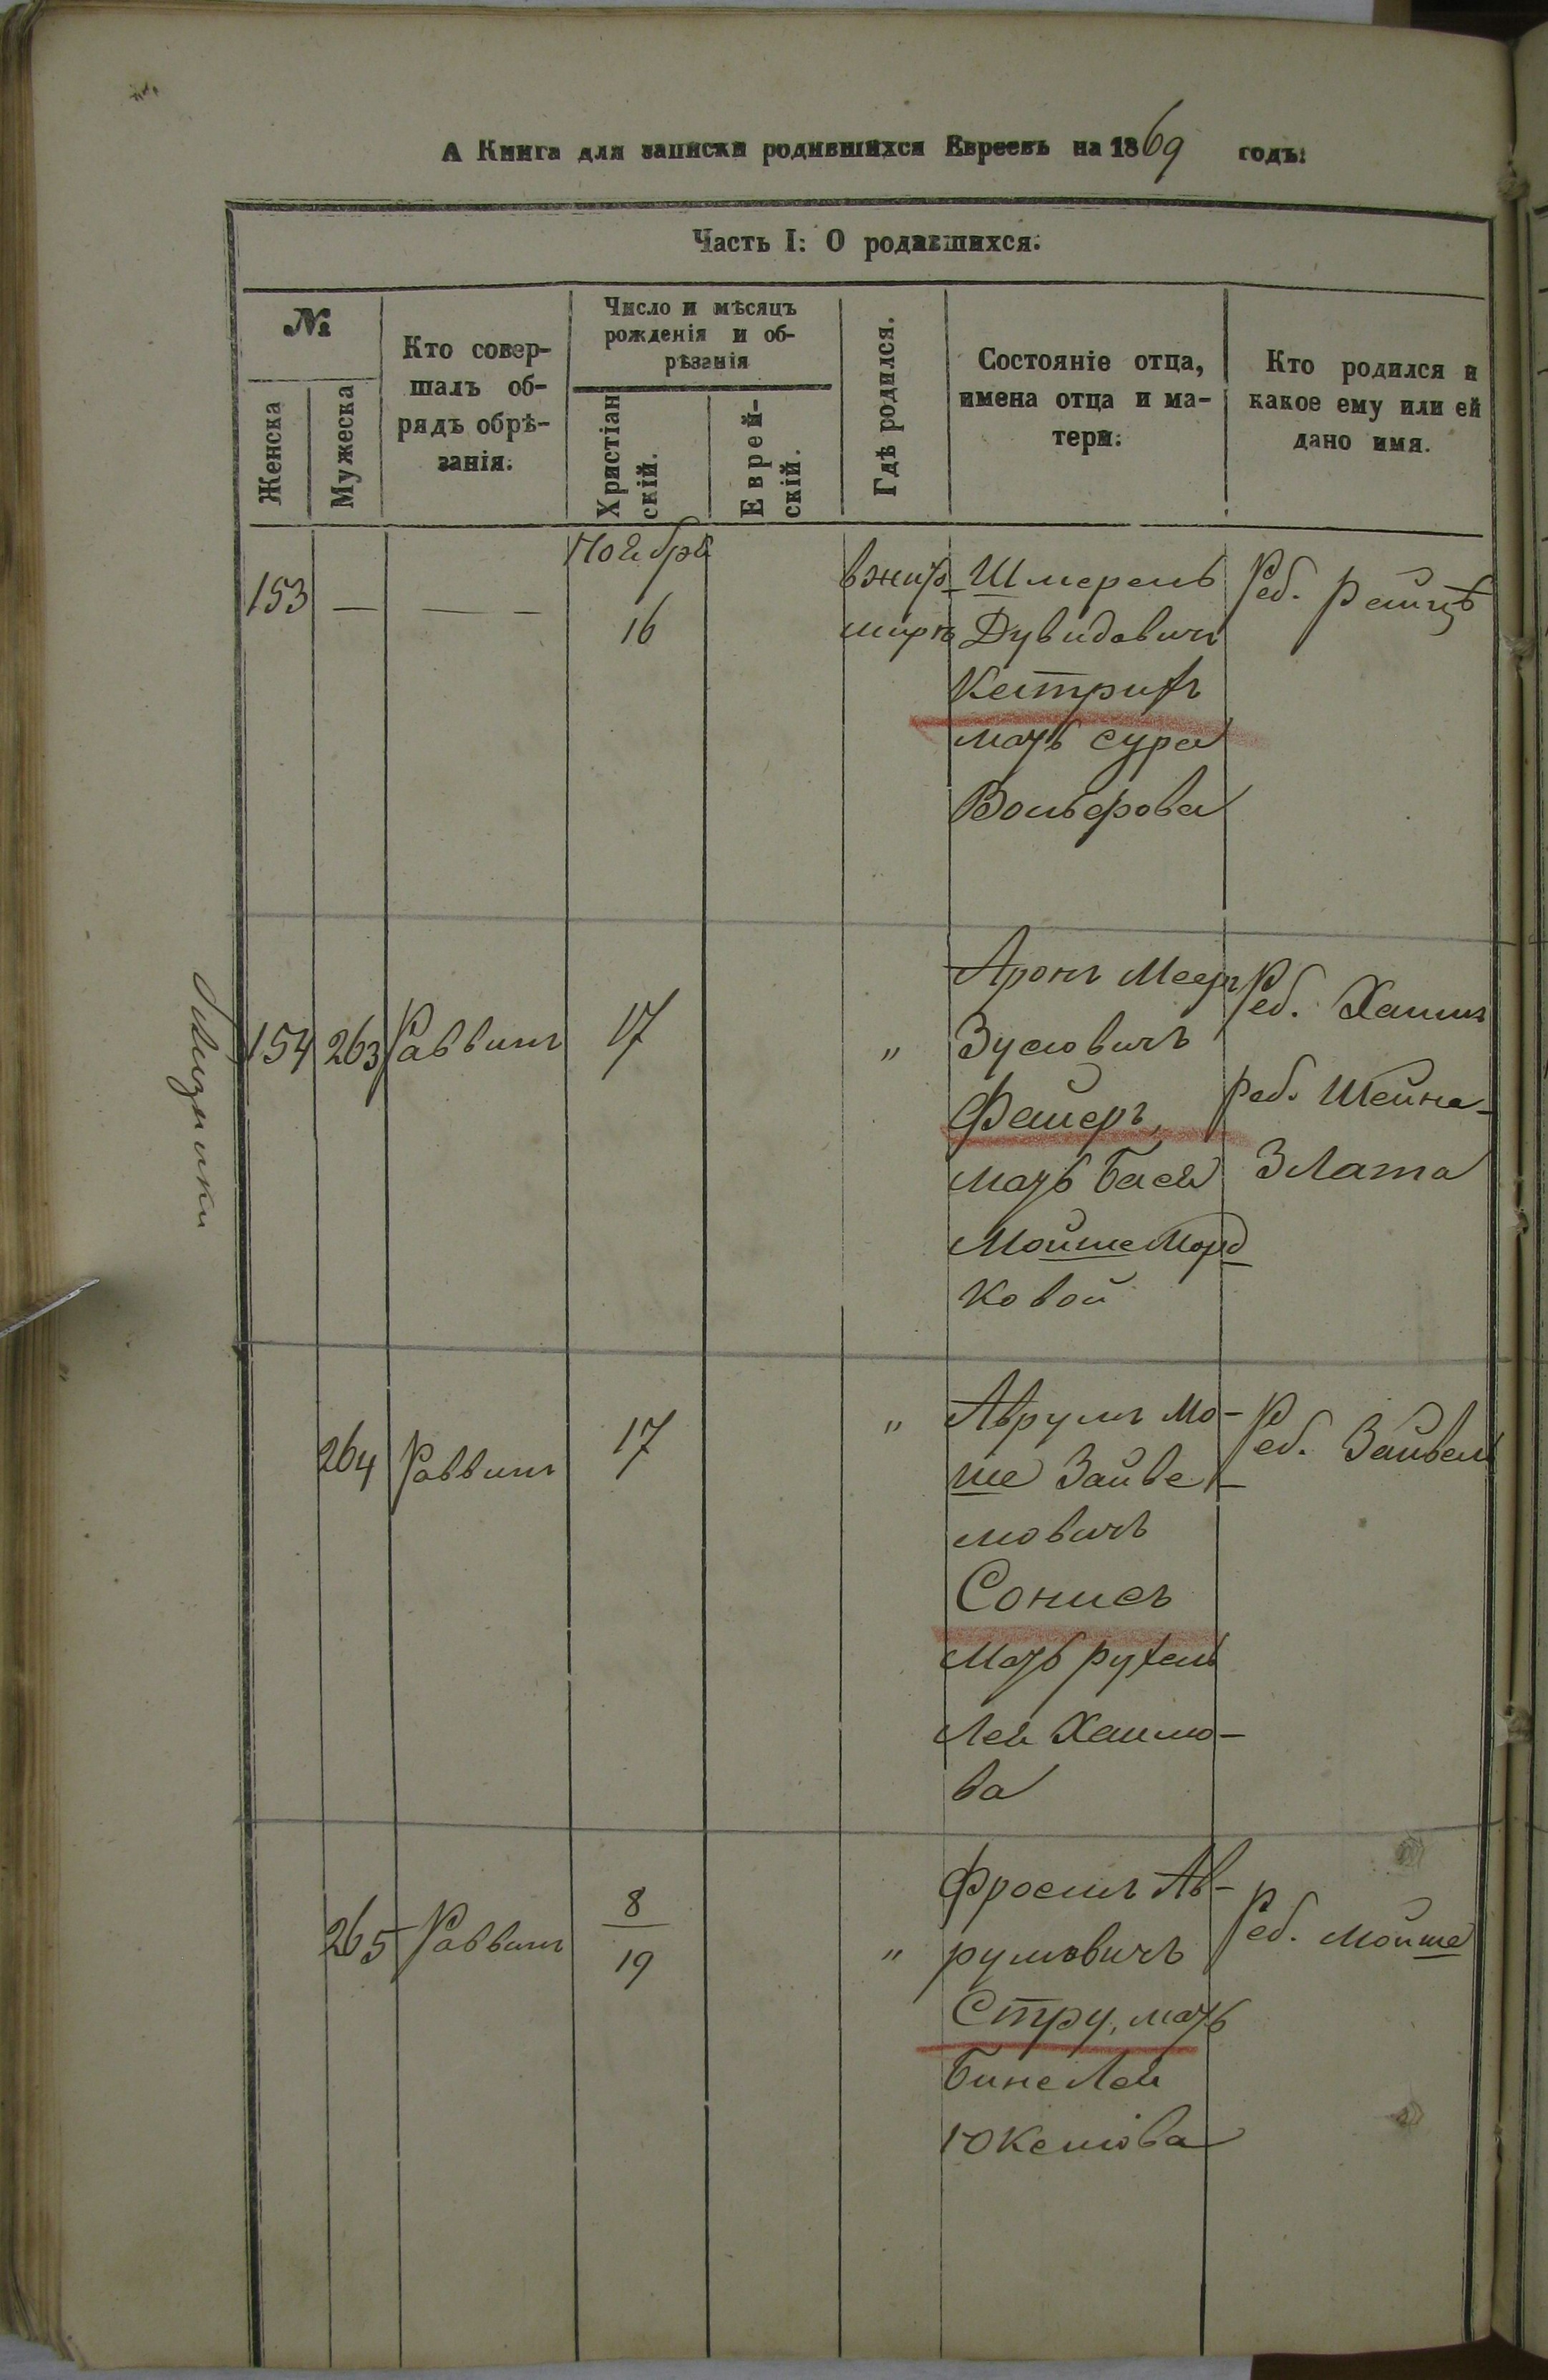 А Книга для записки родившихся Евреевъ на 1869 годъ:
Часть I: О родившихся.
№
Женска
Мужеска
Кто совер-
шалъ об-
рядъ обрѣ-
занія.
Число и мѣсяцъ
рожденія и об-
рѣзанія
Христіан
скій.
Еврей-
скій.
Гдѣ родился.
Состояніе отца,
имена отца и ма-
тери.
Кто родился и
какое ему или ей
дано имя.
Ноября
153 — — —
16
въ жито
мирѣ
Шмерель
Дувидовичъ
Кестрихъ
мать Сура
Вольфова
Реб. Рейзъ
Близнаки
154 263 Раввинъ 17 "
Аронъ Меер
Зусіовичъ
Фаеръ,
мать Бася
Мойше Морд
ковой
Реб. Хаимъ
реб. Шейна-
Злата
264 Раввинъ 17 "
Аврумъ Мо-
ше Зайве-
ловичъ
Сонисъ
мать Рухель
Лея Хаимо-
ва
Реб. Зайвель
265 Раввинъ
8
19
"
Фроемъ Ав-
румовичъ
Стру, мать
Бине Лея
Реб. Мойше